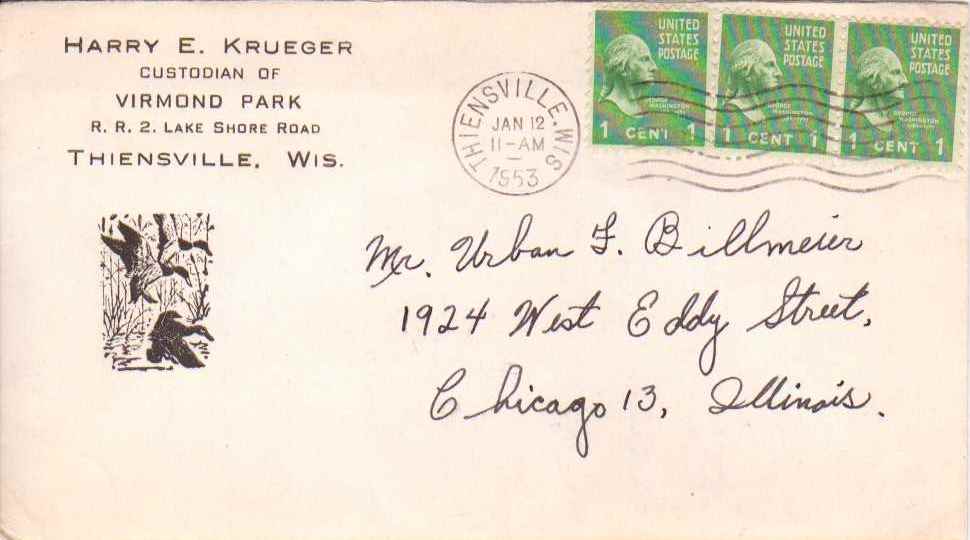 HARRY E. KRUEGER
CUSTODIAN OF
VIRMOND PARK
R. R. 2. LAKE SHORE ROAD
THIENSVILLE, WIS.
THIENSVILLE, WIS
JAN 12
11-AM
1953
UNITED
STATES
POSTAGE
GEORGE
WASHINGTON
1 CENT 1
UNITED
STATES
POSTAGE
GEORGE
WASHINGTON
1 CENT 1
UNITED
STATES
POSTAGE
GEORGE
WASHINGTON
1 CENT 1
Mr. Urban F. Billmeier
1924 West Eddy Street,
Chicago 13, Illinois.